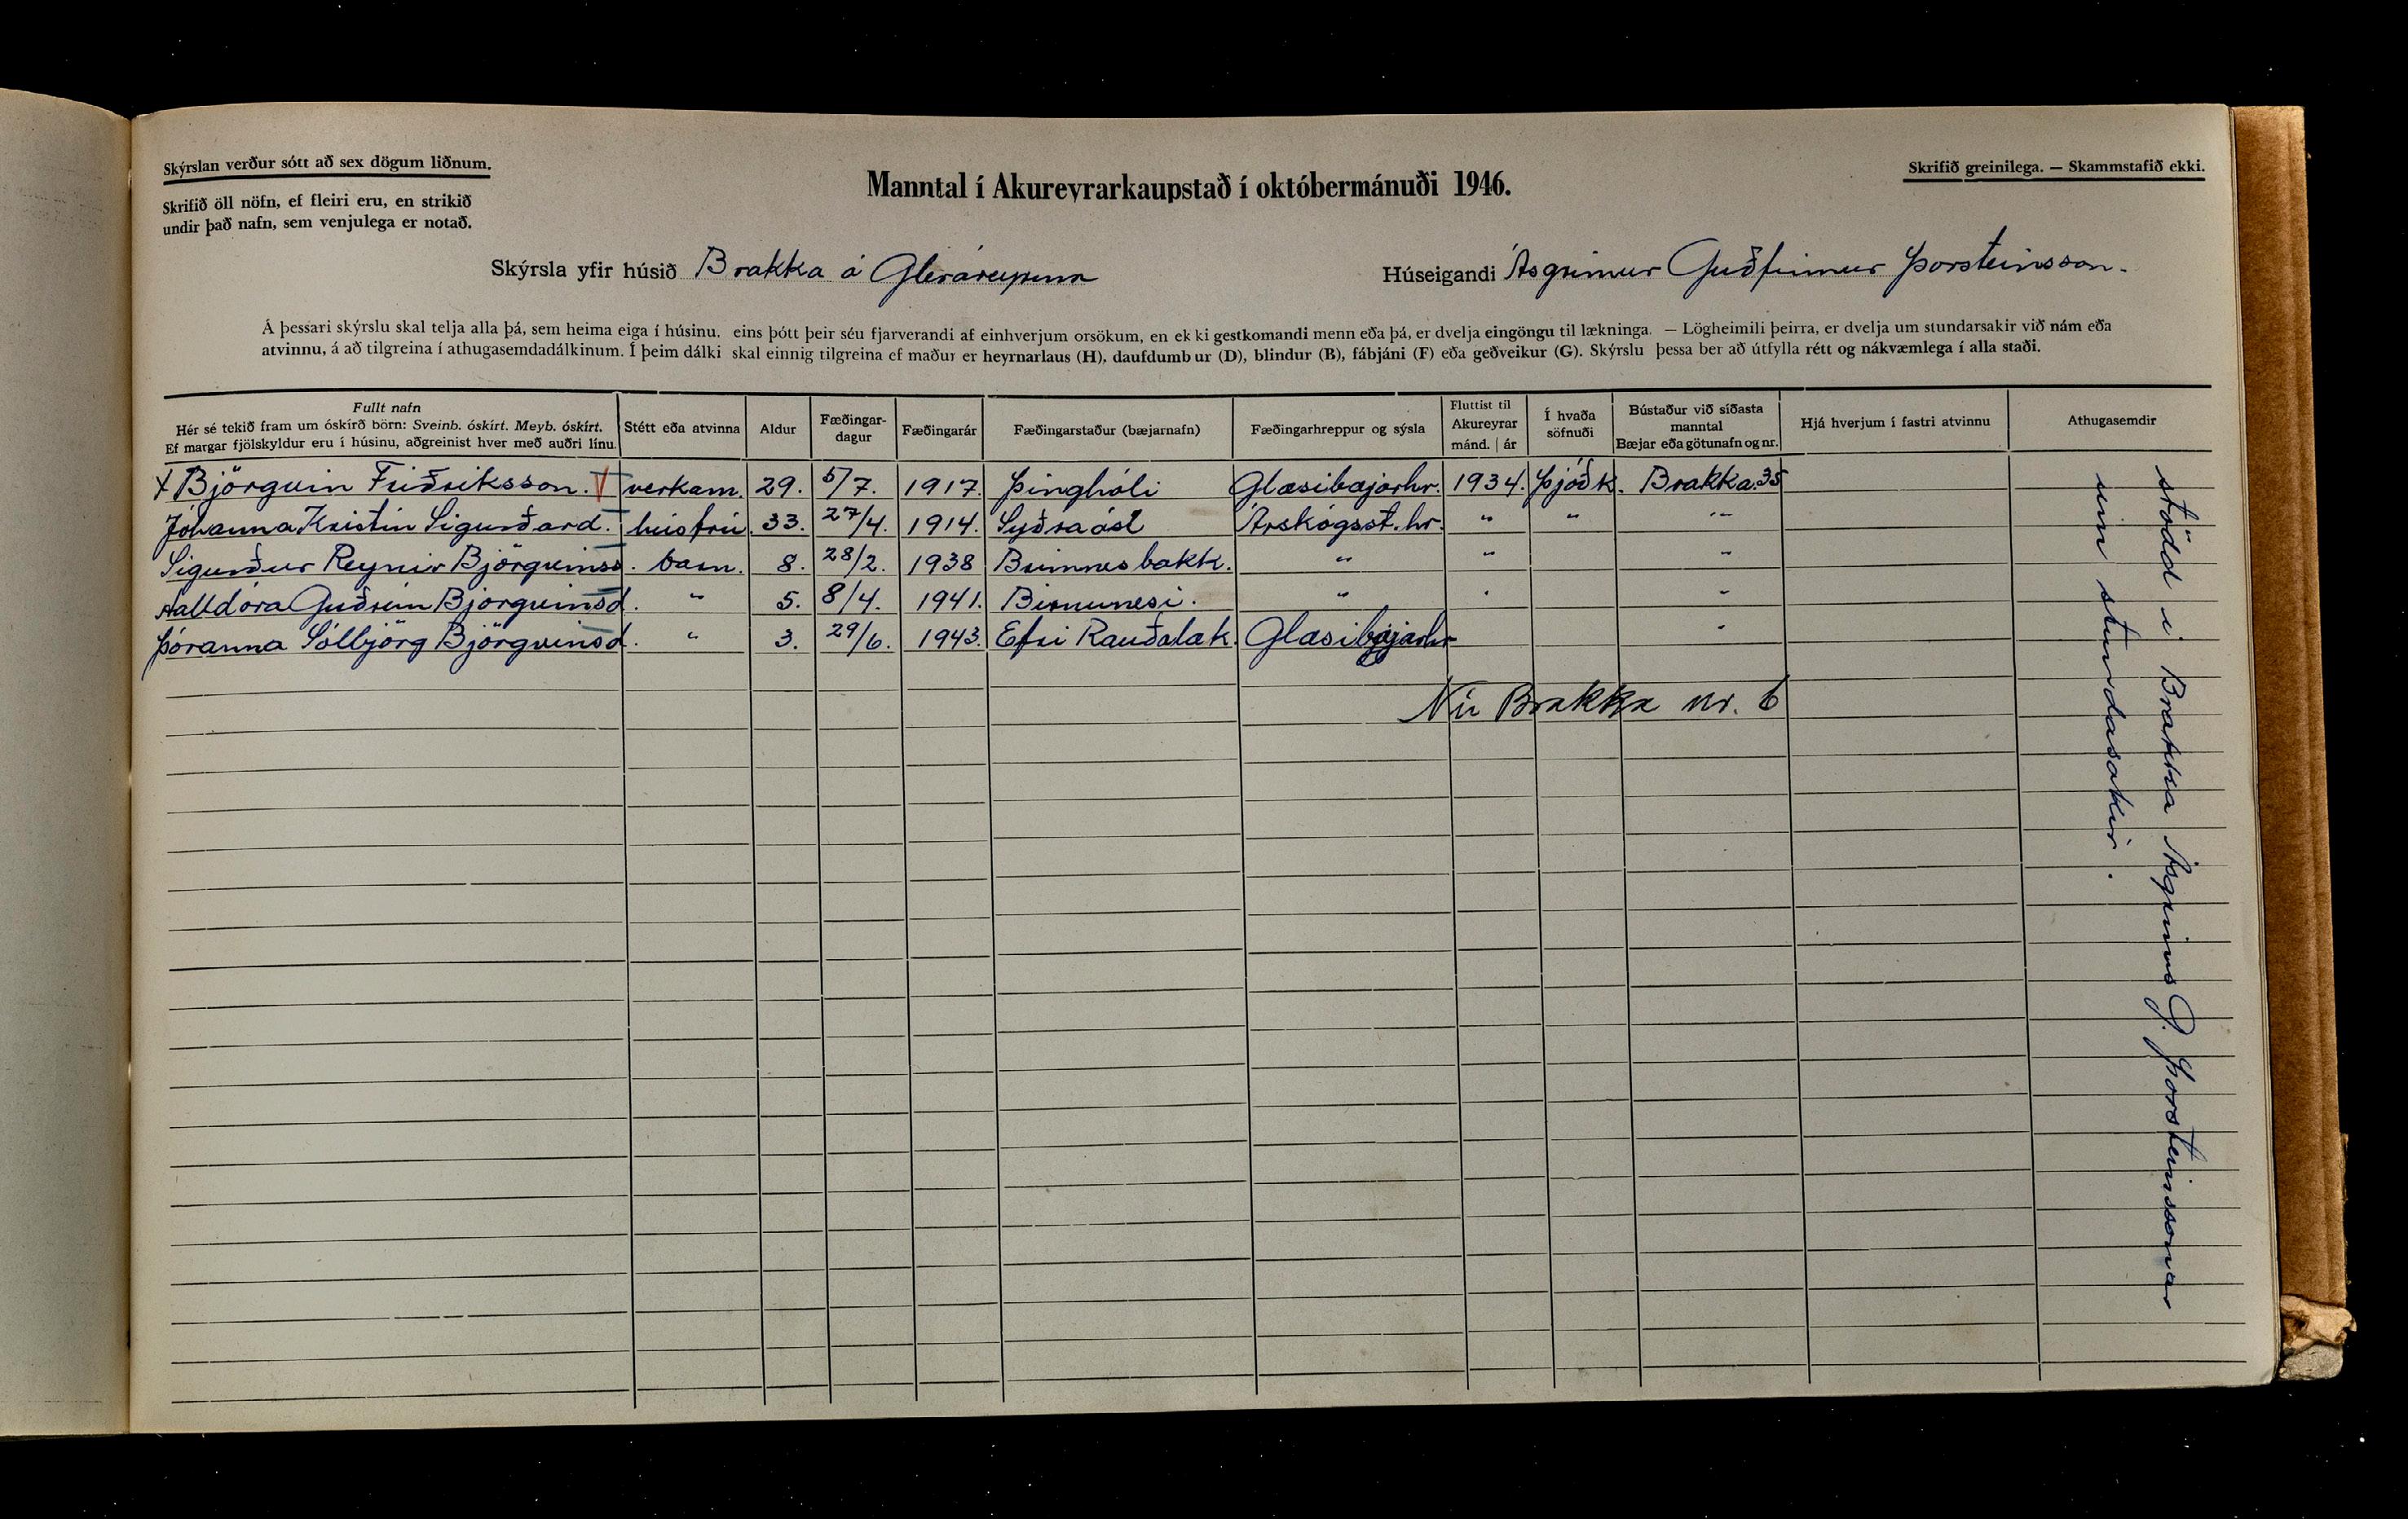 Skýrslan verður sótt að sex dögum liðnum.
Skrifið öll nöfn, ef fleiri eru, en strikið
undir það nafn, sem venjulega er notað.
Manntal í Akureyrarkaupstað í októbermánuði 1946.
Skrifið greinilega. — Skammstafið ekki.
Skýrsla yfir húsið Brakka á Gleráreyrum
Húseigandi Ásgrímur Guðfinnur Þorsteinsson.
Á þessari skýrslu skal telja alla þá, sem heima eiga í húsinu. eins þótt þeir séu fjarverandi af einhverjum orsökum, en ekki gestkomandi menn eða þá, er dvelja eingöngu til lækninga. — Lögheimili þeirra, er dvelja um stundarsakir við nám eða
atvinnu, á að tilgreina í athugasemdadálkinum. Í þeim dálki skal einnig tilgreina ef maður er heyrnarlaus (H), daufdumbur (D), blindur (B), fábjáni (F) eða geðveikur (G). Skýrslu þessa ber að útfylla rétt og nákvæmlega í alla staði.
Fullt nafn
Hér sé tekið fram um óskírð börn: Sveinb. óskírt. Meyb. óskírt.
Ef margar fjölskyldur eru í húsinu, aðgreinist hver með auðri línu.
Stétt eða atvinna
Aldur
Fæðingar-
dagur
Fæðingarár
Fæðingarstaður (bæjarnafn)
Fæðingarhreppur og sýsla
Fluttist til
Akureyrar
mánd. | ár
Í hvaða
söfnuði
Bústaður við síðasta
manntal
Bæjar eða götunafn og nr.
Hjá hverjum í fastri atvinnu
Athugasemdir
x Björgvin Friðriksson. verkam. 29. 5/7. 1917. Þinghóli Glæsibæjarhr. 1934. Þjóðk. Brakka 35
Jóhanna Kristín Sigurðard. húsfrú. 33. 27/4. 1914. Syðraási Árskógsst.hr. " " "
Sigurður Reynir Björgvinss. barn. 8. 28/2. 1938 Brimnesbakk. " " "
Halldóra Guðrún Björgvinsd. " 5. 8/4. 1941. Birnunesi. " " "
Þóranna Sólbjörg Björgvinsd. " 3. 29/6. 1943. Efri Rauðalæk. Glæsibæjarhr "
Nú Brakka nr. 6
stödd í Brakka Ásgríms G. Þorsteinssonar
um stundasakir.